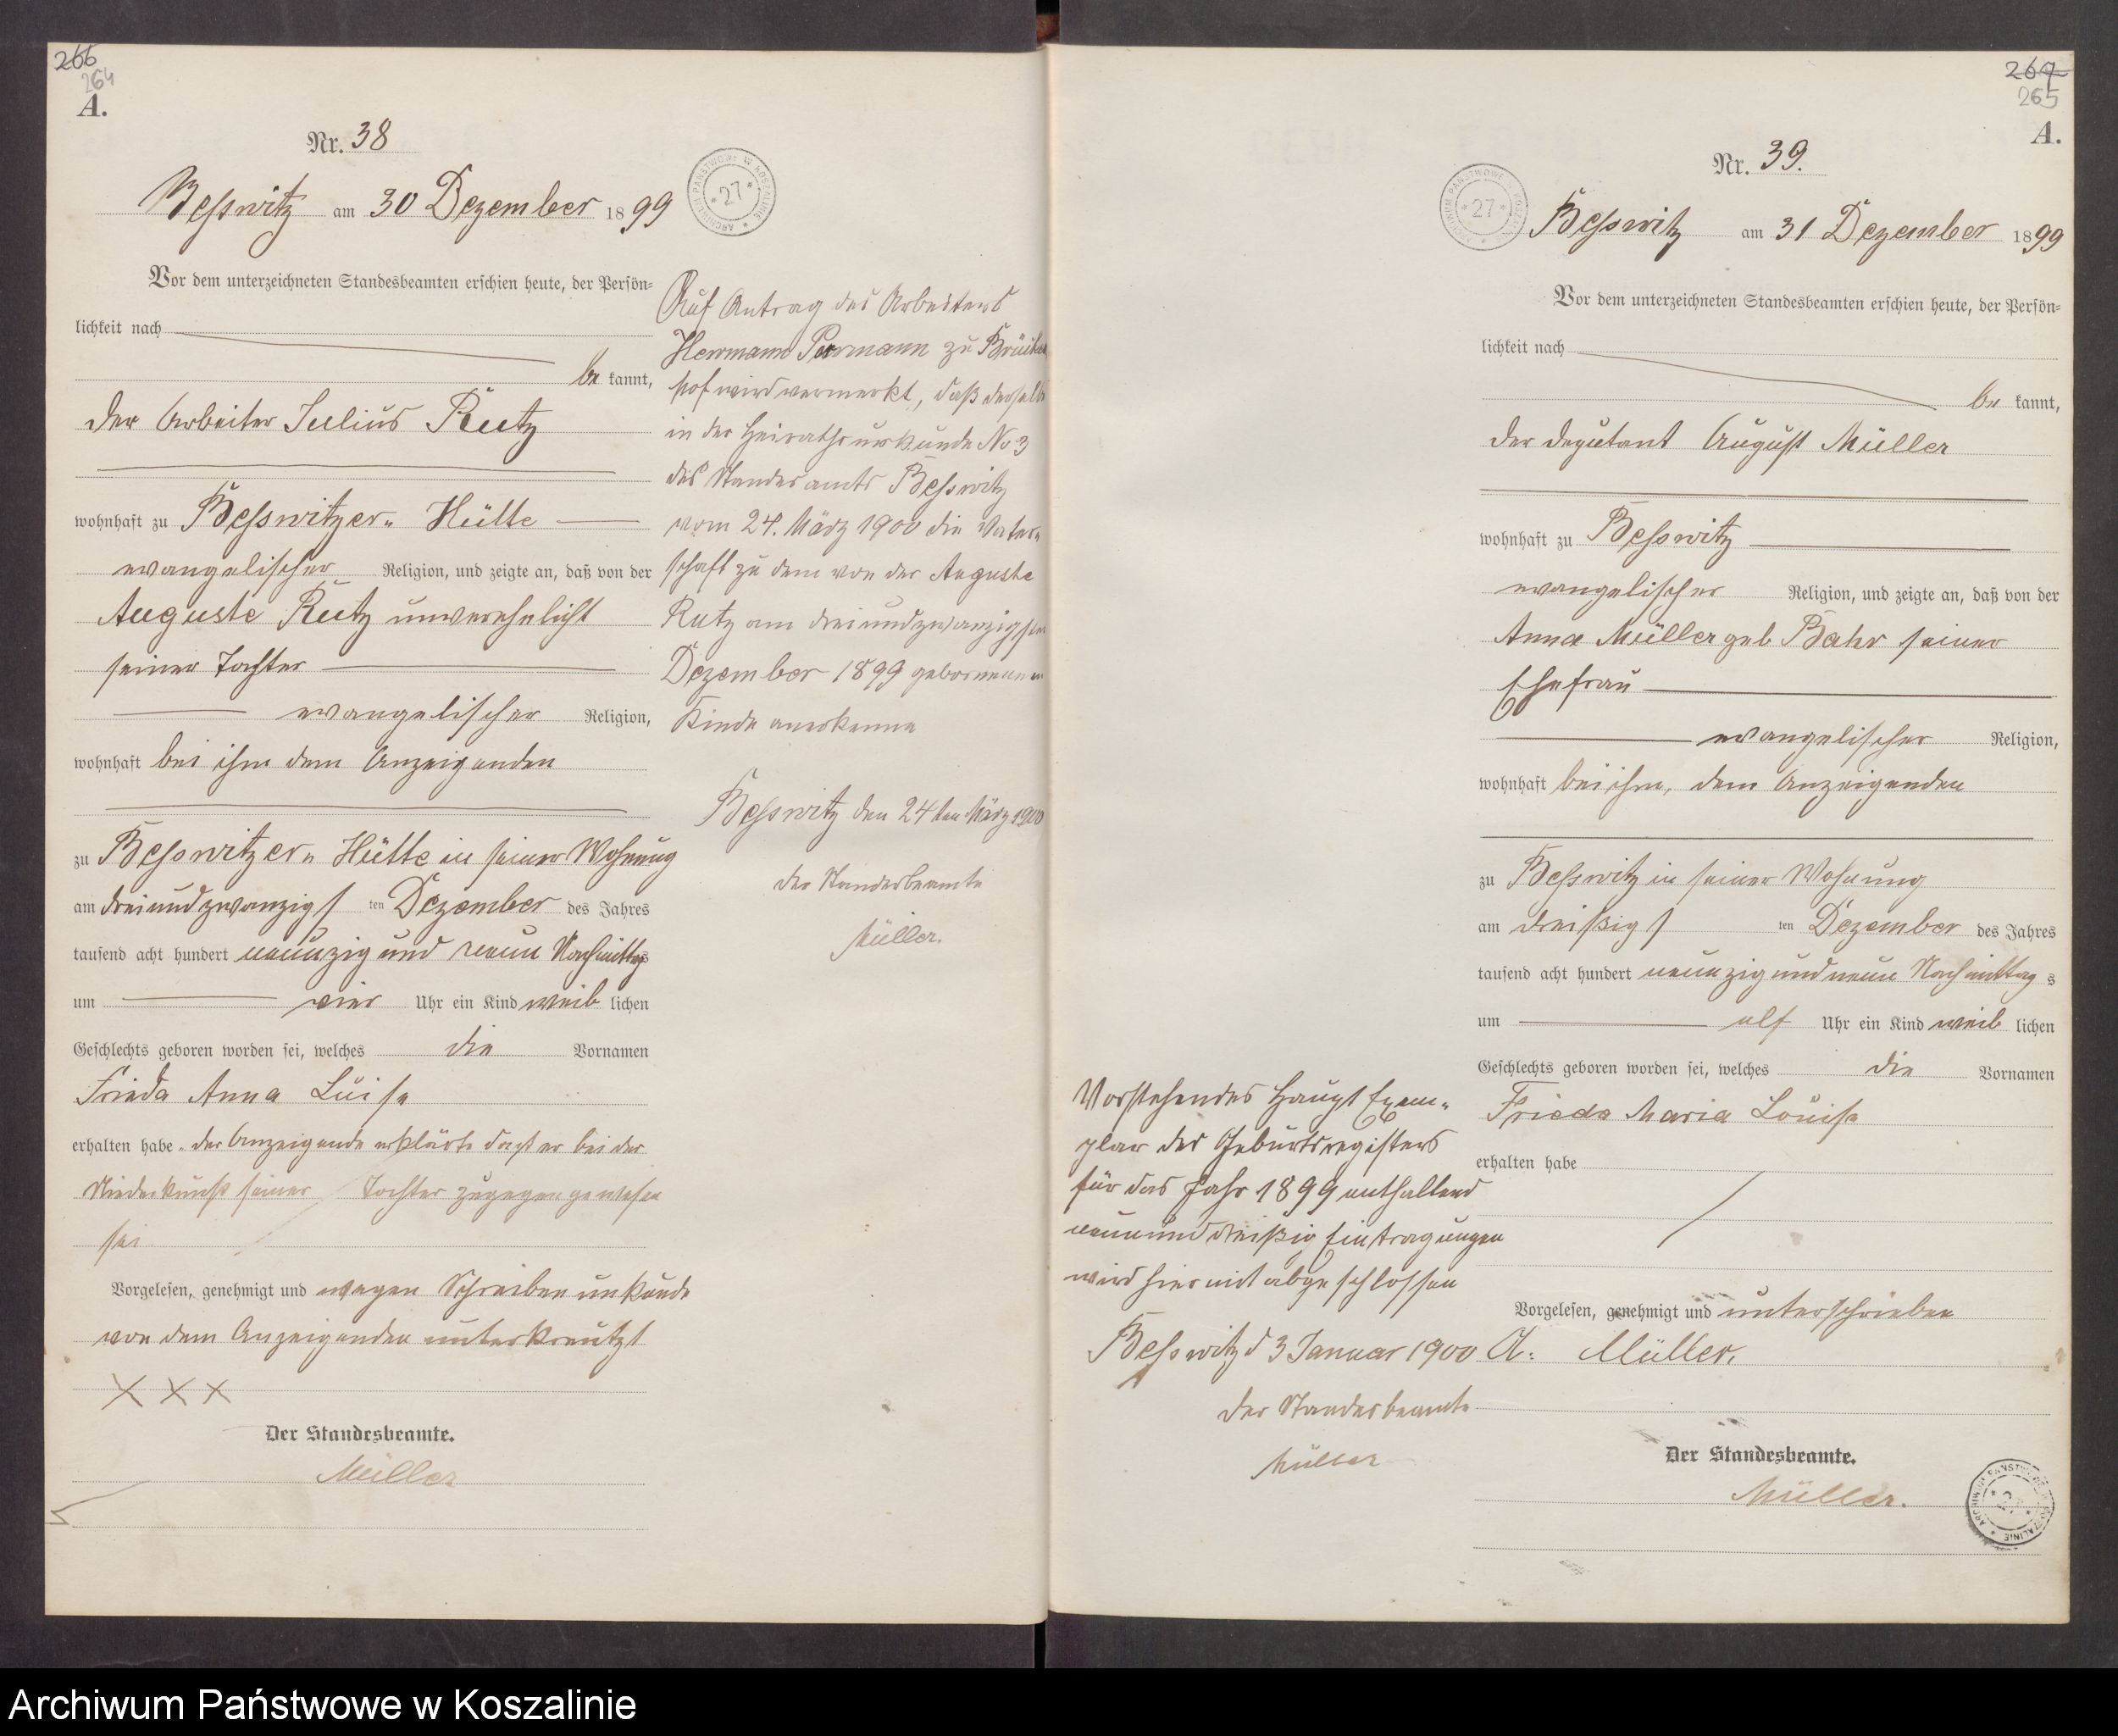 266
264
A.
Nr. 38
Besswitz am 30 Dezember 1899
Vor dem unterzeichneten Standesbeamten erschien heute, der Persön-
lichkeit nach
be kannt,
der Arbeiter Julius Rutz
wohnhaft zu Besswitzer- Hütte
evangelischer Religion, und zeigte an, daß von der
Auguste Rutz unverehelicht
seiner Tochter
evangelischer Religion,
wohnhaft bei ihm dem Anzeigenden
zu Besswitzer- Hütte in seiner Wohnung
am dreiundzwanzigs ten Dezember des Jahres
tausend acht hundert neunzig und neun Nachmittags
um vier Uhr ein Kind weib lichen
Geschlechts geboren worden sei, welches die Vornamen
Frieda Anna Luise
erhalten habe. der Anzeigende erklärte daß er bei der
Niederkunft seiner Tochter zugegen gewesen
sei
Vorgelesen, genehmigt und wegen Schreibenunkunde
von dem Anzeigenden unterkreutzt
X X X
Der Standesbeamte.
Müller
ARCHIWUM PAŃSTWOWE W KOSZALINIE
* 27 *
Auf Antrag des Arbeiters
Hermann zu
hof wird vermerkt, daß derselbe
in der Heirathsurkunde No 3
des Standesamts Besswitz
vom 24. März 1900 die Vater-
schaft zu dem von der Auguste
Rutz am dreiundzwanzigsten
Dezember 1899 geborenen
Kinde anerkenne
Besswitz den 24ten März 1900
der Standesbeamte
Müller.
267
265
A.
Nr. 39.
ARCHIWUM PAŃSTWOWE W KOSZALINIE
* 27 *
Besswitz am 31 Dezember 1899
Vor dem unterzeichneten Standesbeamten erschien heute, der Persön-
lichkeit nach
be kannt,
der Deputant August Müller
wohnhaft zu Besswitz
evangelischer Religion, und zeigte an, daß von der
Anna Müller geb Bahr seiner
Ehefrau
evangelischer Religion,
wohnhaft bei ihm, dem Anzeigenden
zu Besswitz in seiner Wohnung
am dreißigs ten Dezember des Jahres
tausend acht hundert neunzig und neun Nachmittag s
um elf Uhr ein Kind weib lichen
Geschlechts geboren worden sei, welches die Vornamen
Frieda Maria Louise
erhalten habe
Vorgelesen, genehmigt und unterschrieben
A. Müller.
Der Standesbeamte.
Müller.
ARCHIWUM PAŃSTWOWE W KOSZALINIE
Vorstehendes Haupt Exem-
plar des Geburtsregisters
für das Jahr 1899 enthaltend
neununddreißig Eintragungen
wird hiermit abgeschlossen
Besswitz d 3 Januar 1900
der Standesbeamte
Müller
Archiwum Państwowe w Koszalinie